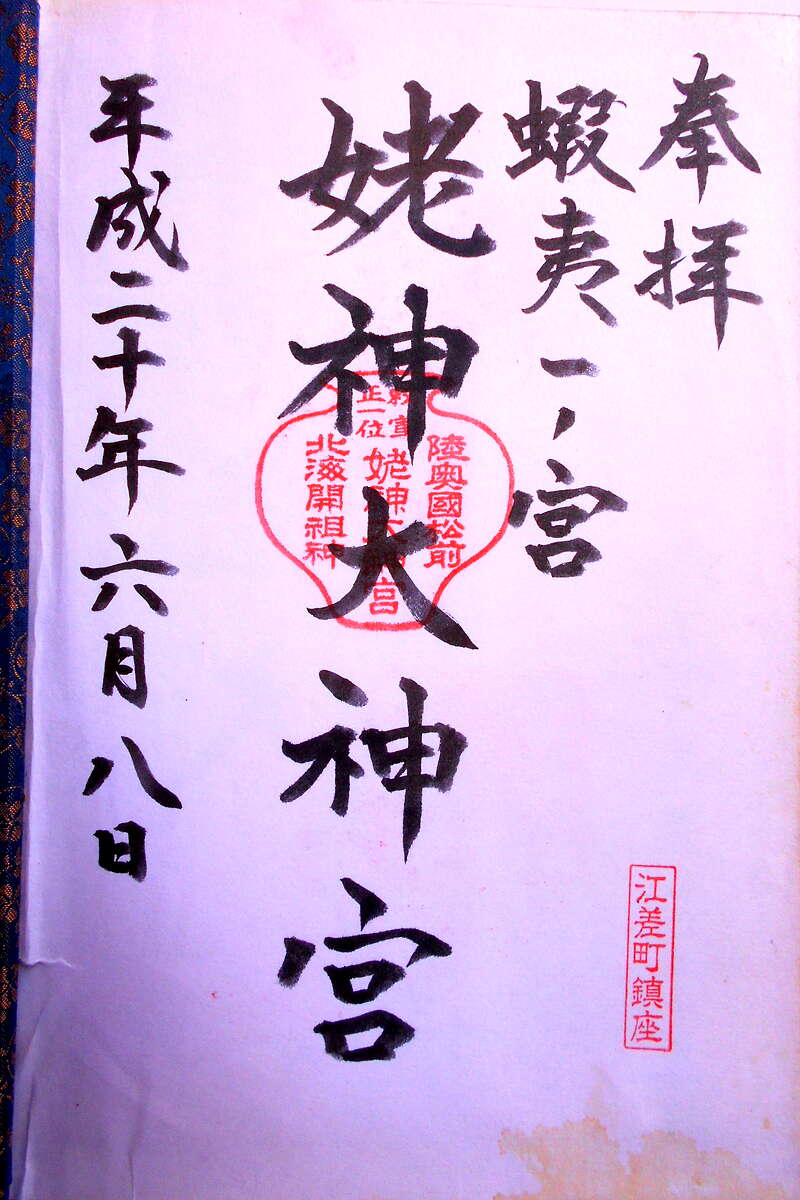 奉拝
蝦夷一ノ宮
姥神大神宮
平成二十年六月八日
陸奥國松前
正一位
姥神大神宮
北海開祖神
江差町鎮座